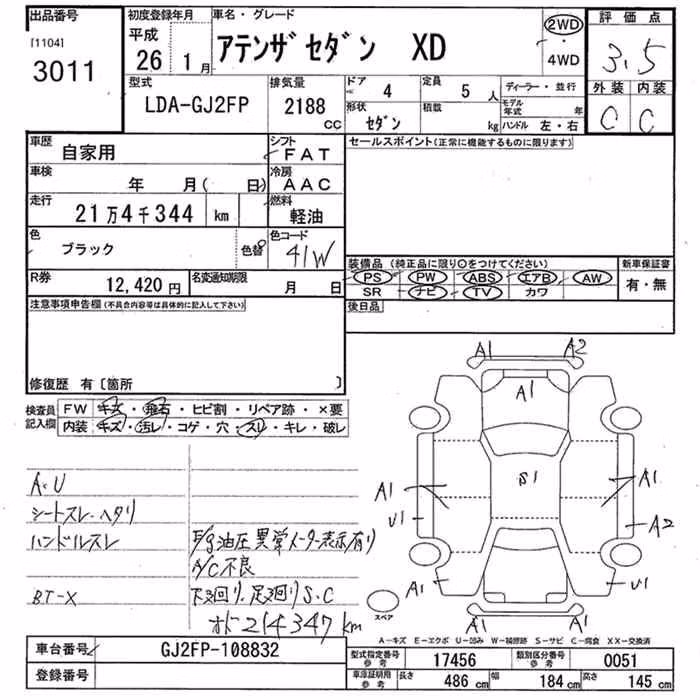 出品番号
[1104]
3011
初度登録年月
平成
26 1月
車名・グレード
アテンザセダン XD
2WD
・
4WD
評価点
3.5
外装 内装
C C
型式
LDA-GJ2FP
排気量
2188
cc
ドア 4
形状
セダン
定員 5 人
積載 kg
ディーラー・並行
モデル年式 年
ハンドル 左・右
車歴
自家用
シフト
FAT
車検
年 月( 日)
冷房
AAC
走行
21万4千344 km
燃料
軽油
色
ブラック
色替
色コード
41W
R券
12,420円
名変通知期限
月 日
セールスポイント(正常に機能するものに限ります)
装備品(純正品に限り○をつけてください)
PS PW ABS エアB AW
SR ナビ TV カワ
新車保証書
有・無
後日品
注意事項申告欄(不具合内容等は具体的に記入して下さい)
修復歴 有〔箇所 〕
検査員記入欄
FW キズ・飛石・ヒビ割・リペア跡・×要
内装 キズ・汚レ・コゲ・穴・スリ・キレ・破レ
A・U
シートスレ・ヘタリ
ハンドルスレ
BT-X
E/g油圧異常メーター表示有り
A/C不良
下廻り、足廻りS.C
オド214347km
A1 A2
A1
S1
A1 A1
U1 A2
A1 U1
A1 A1
スペア
A-キズ E-エクボ U-凹み W-補修跡 S-サビ C-腐食 XX-交換済
車台番号
GJ2FP-108832
登録番号
型式指定番号
参考
17456
類別区分番号
参考
0051
車庫証明用
参考
長さ 486 cm
幅 184 cm
高さ 145 cm